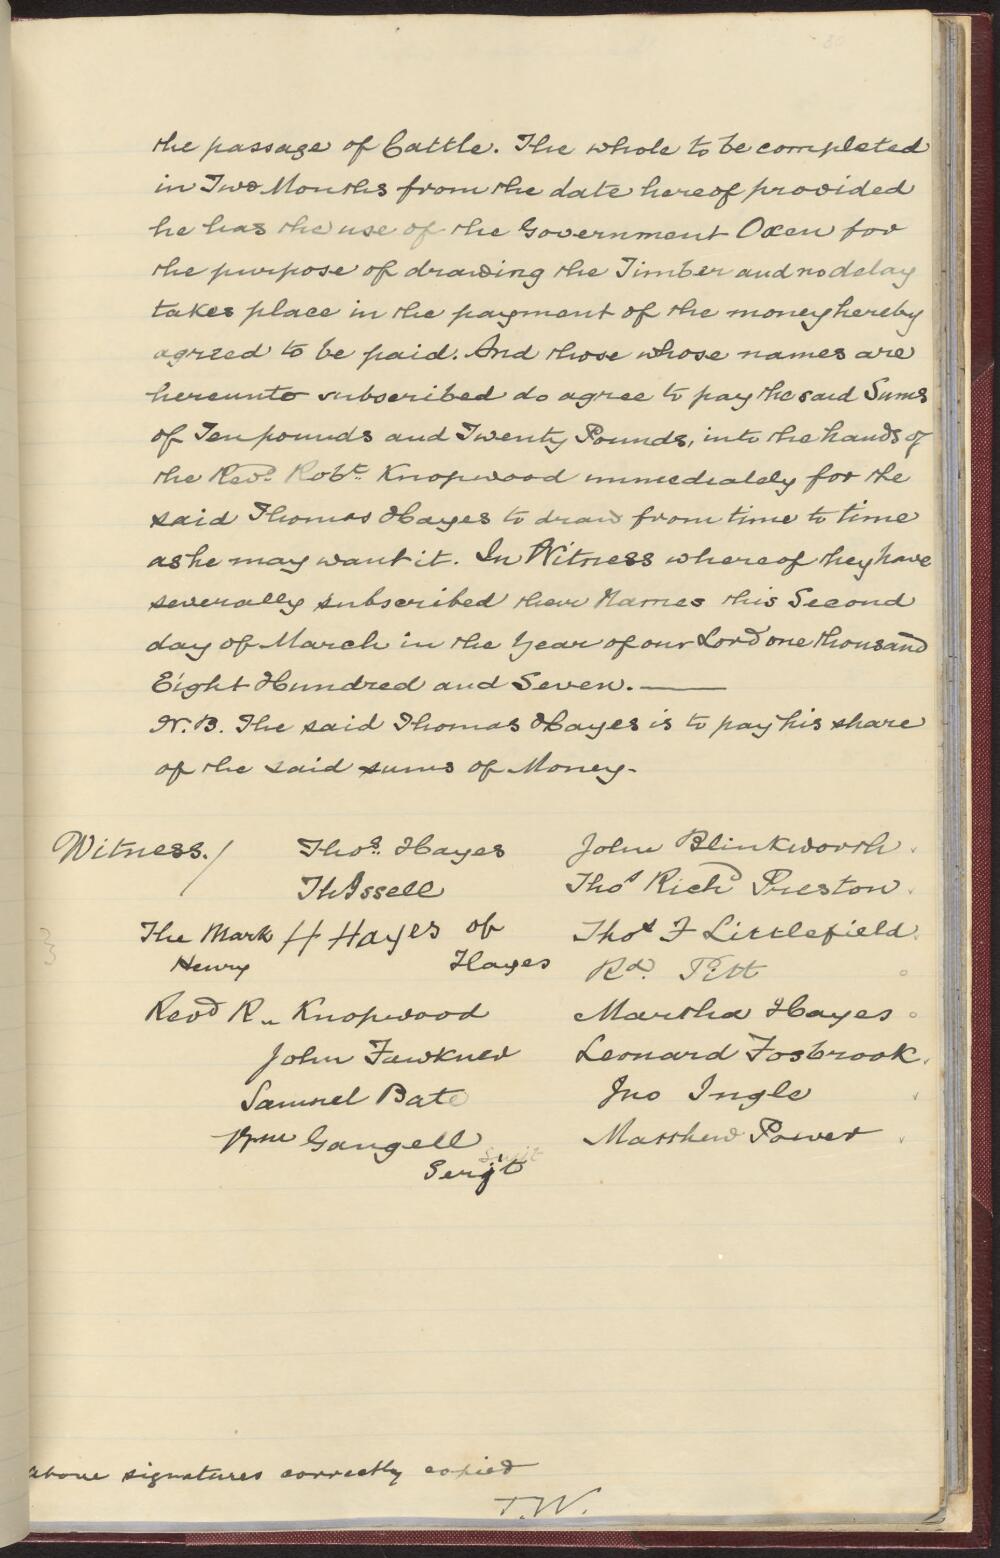 the passage of Cattle. The whole to be completed
in Two Months from the date hereof provided
he has the use of the Government Oxen for
the purpose of drawing the Timber and no delay
takes place in the payment of the money hereby
agreed to be paid. And those whose names are
hereunto subscribed do agree to pay the said Sums
of Ten pounds and Twenty Pounds, into the hands of
the Revd. Robt. Knopwood immediately for the
said Thomas Hayes to draw from time to time
as he may want it. In Witness whereof they have
severally subscribed their Names this Second
day of March in the Year of our Lord one thousand
Eight Hundred and Seven.——
N.B. The said Thomas Hayes is to pay his share
of the said sums of Money-
Witness./ Thos. Hayes John Blinkworth.
Th Issell Thos Richd Preston.
The Mark H Hayes of Thos F Littlefield.
Henry Hayes Rd. Pitt
Revd R. Knopwood Martha Hayes
John Fawkner Leonard Fosbrook.
Samuel Bate Jno Ingle
Wm Gangell Matthew Power
Serjt
above signatures correctly copied
T.W.